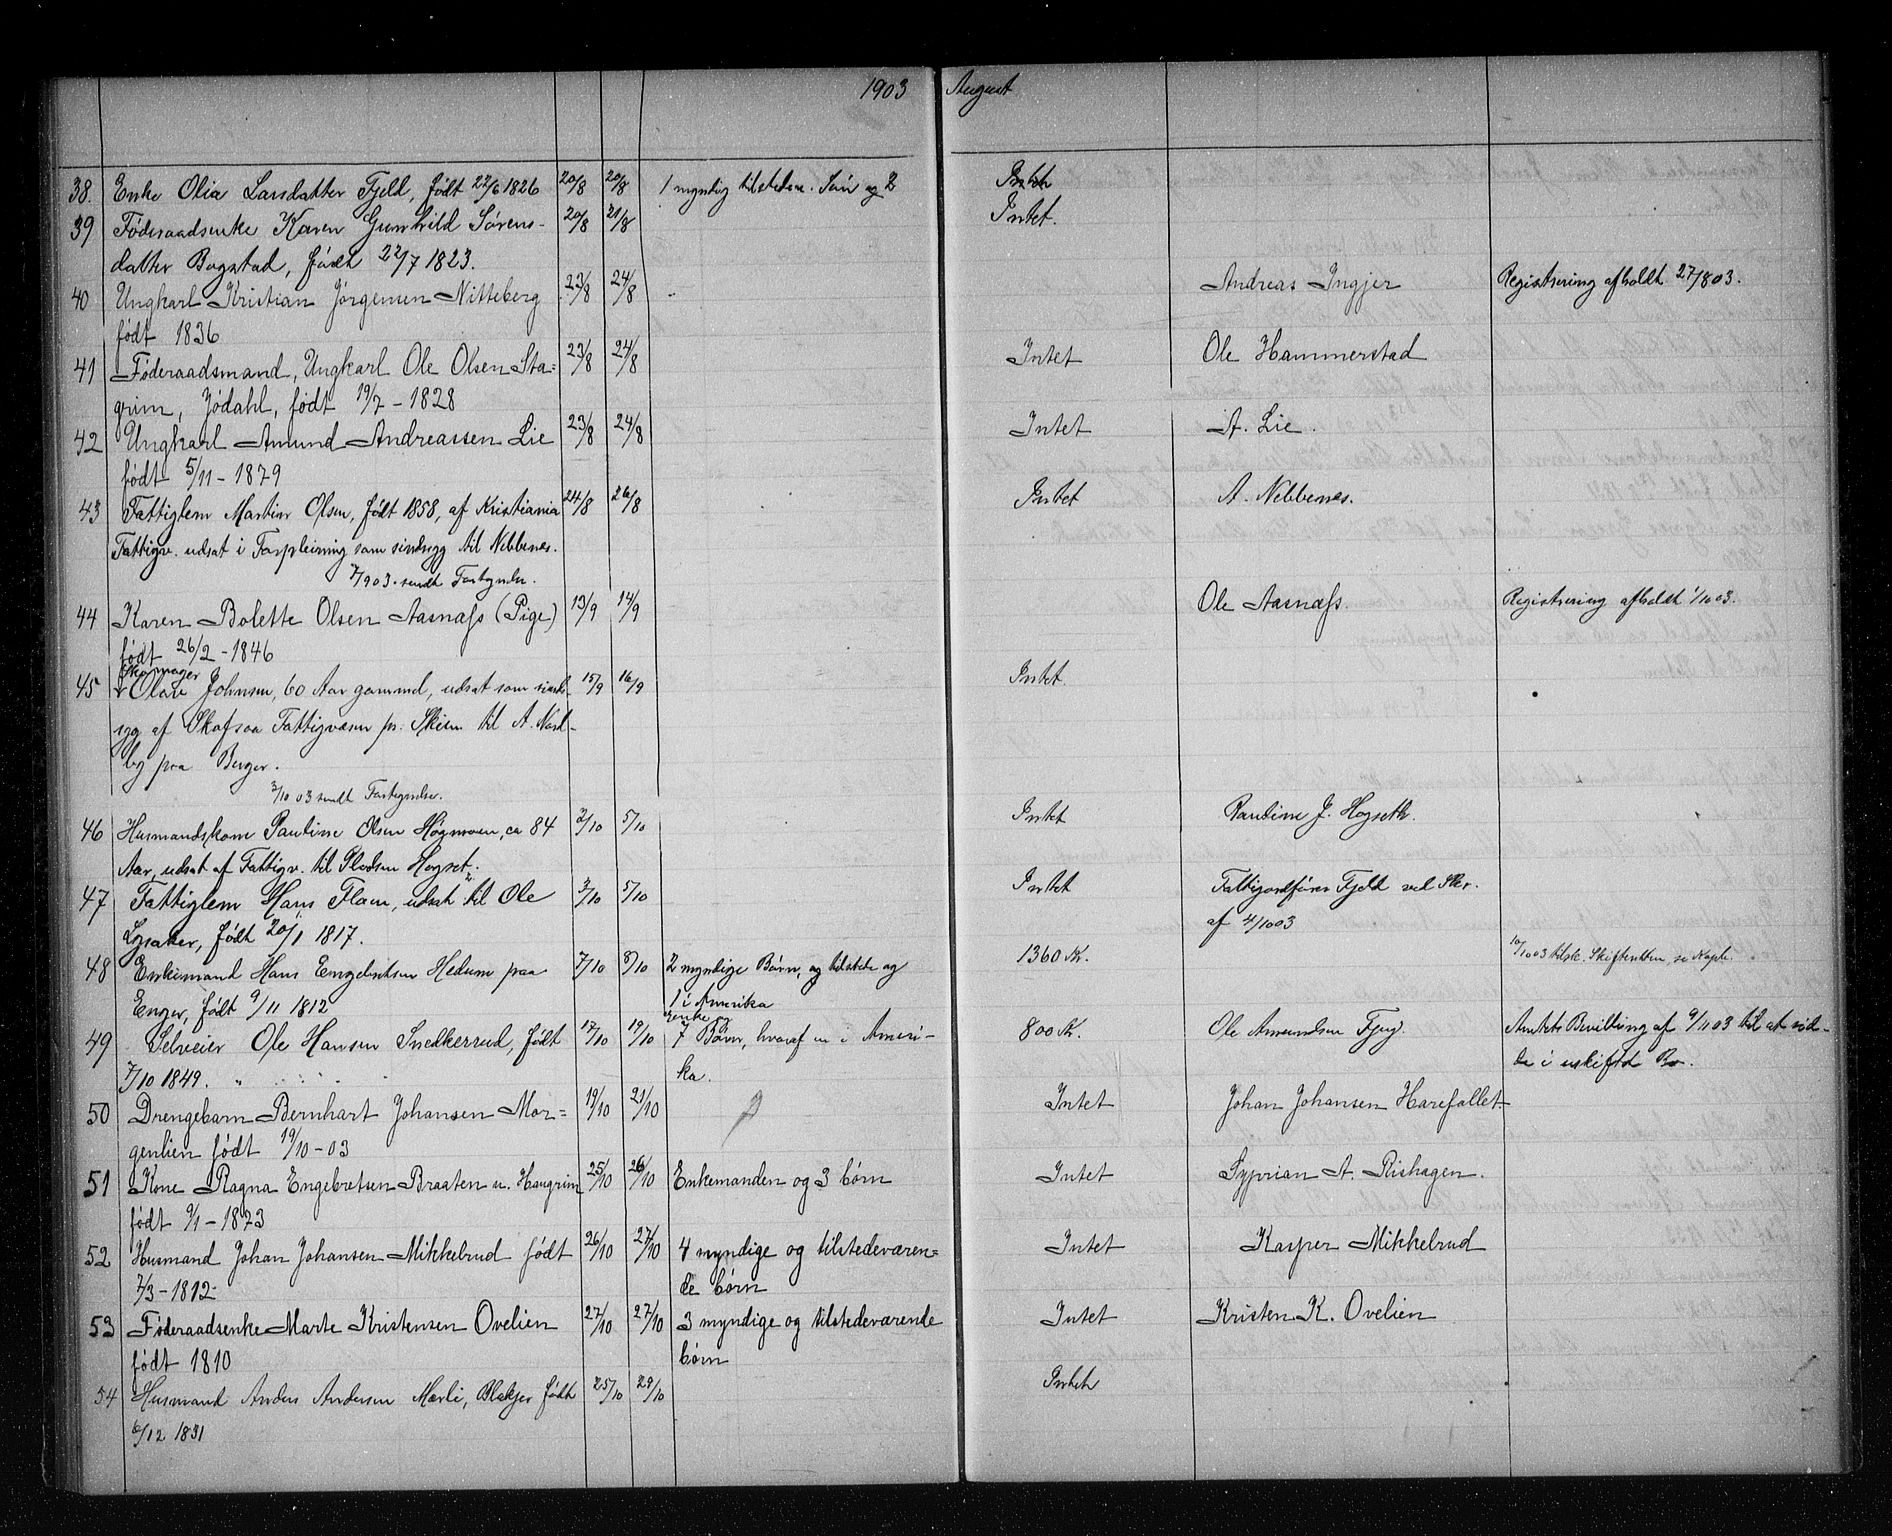 1903 August
38. Enke Olia Larsdatter Fjeld, født 22/6 1826 20/8 20/8 1 myndig tilstedev. Søn og 2 Intet
39 Føderaadsenke Karen Gunhild Sørens- 20/8 21/8 Intet.
datter Bogstad, født 22/7 1823.
40 Ungkarl Kristian Jørgensen Nitteberg 23/8 24/8 - Andreas Ingjer Registrering afholdt 27/8 03.
født 1836
41 Føderaadsmand, Ungkarl Ole Olsen Sta= 23/8 24/8 Intet Ole Hammerstad
grim, Jødahl, født 19/7 - 1828
42 Ungkarl Amund Andreassen Lie 23/8 24/8 Intet A. Lie.
født 5/11 - 1879
43 Fattiglem Martin Olsen, født 1858, af Kristiania 24/8 26/8 Intet A. Nebbenes.
Fattigv. udsat i Forpleining som sindsyg til Nebbenes.
7/9 03. sendt Fortegnelse.
44 Karen Bolette Olsen Aasnæss (Pige) 13/9 14/9 Ole Aasnæss. Registrering afholdt 1/10 03.
født 26/2 - 1846
Skomager
45 Olav Johnsen, 60 Aar gammel, udsat som sinds- 15/9 16/9 Intet
syg af Skafsaa Fattigvæsen pr. Skien til A. Nord-
by paa Berger.
3/10 03 sendt Fortegnelse.
46 Husmandskone Pauline Olsen Høgmoen, ca 84 2/10 5/10 Intet Pauline J. Hogseth.
Aar, udsat af Fattigv. til Hogset.
47 Fattiglem Hans Flaen, udsat til Ole 3/10 5/10 Intet Fattigordfører Fjeld ved Skr.
Lysaker, født 20/1 1817. af 4/10 03
48 Enkemand Hans Engebretsen Hedum paa 7/10 8/10 2 myndige Børn, og tilstede og 1360 Kr. 10/10 03 tilsk. Skifteretten, se Kopib.
Enger, født 9/11 1812 1 i Amerika
Enke og
49 Selveier Ole Hansen Snedkerrud, født 17/10 19/10 7 Børn, hvoraf en i Ameri- 800 Kr. Ole Amundsen Fjug. Amtets Bevilling af 9/11 03 til at sid-
7/10 1849. ka. de i uskiftet Bo.
50 Drengebarn Bernhart Johansen Mor= 19/10 21/10 Intet Johan Johansen Harefallet
genlien født 19/10 - 03
51 Kone Ragna Engebretsen Braaten n. Haugrim 25/10 26/10 Enkemanden og 3 børn Intet Syprian A. Rishagen.
født 9/1 - 1873
52 Husmand Johan Johansen Mikkelrud født 26/10 27/10 4 myndige og tilstedeværen= Intet Kasper Mikkelrud
7/3 - 1812 de børn
53 Føderaadsenke Marte Kristensen Ovelien 27/10 27/10 3 myndige og tilstedeværende Intet Kristen K. Ovelien
født 1810 børn
54 Husmand Anders Andersen Mærli, Blakjer født 25/10 29/10 Intet
6/12 1831